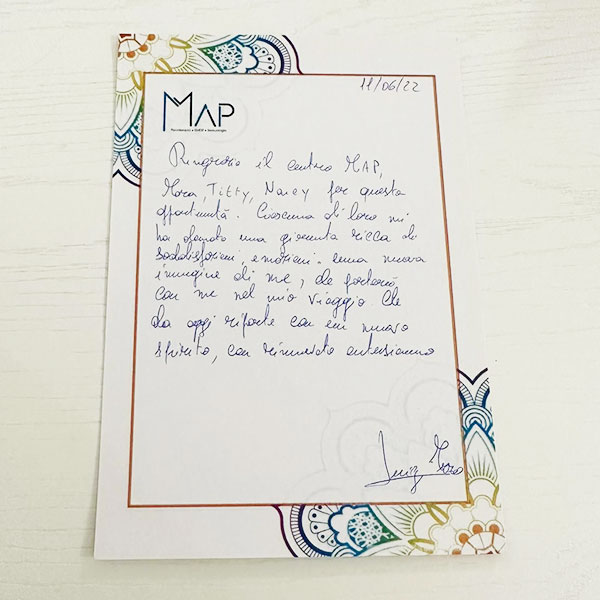 11/06/22
MAP
Ringrazio il centro MAP,
Mora, Titty, Nancy per questa
opportunità. Ciascuna di loro mi
ha donato una giornata ricca di
soddisfazioni, emozioni. una nuova
immagine di me, che porterò
con me nel mio viaggio che
da oggi riparte con un nuovo
spirito, con rinnovato entusiasmo